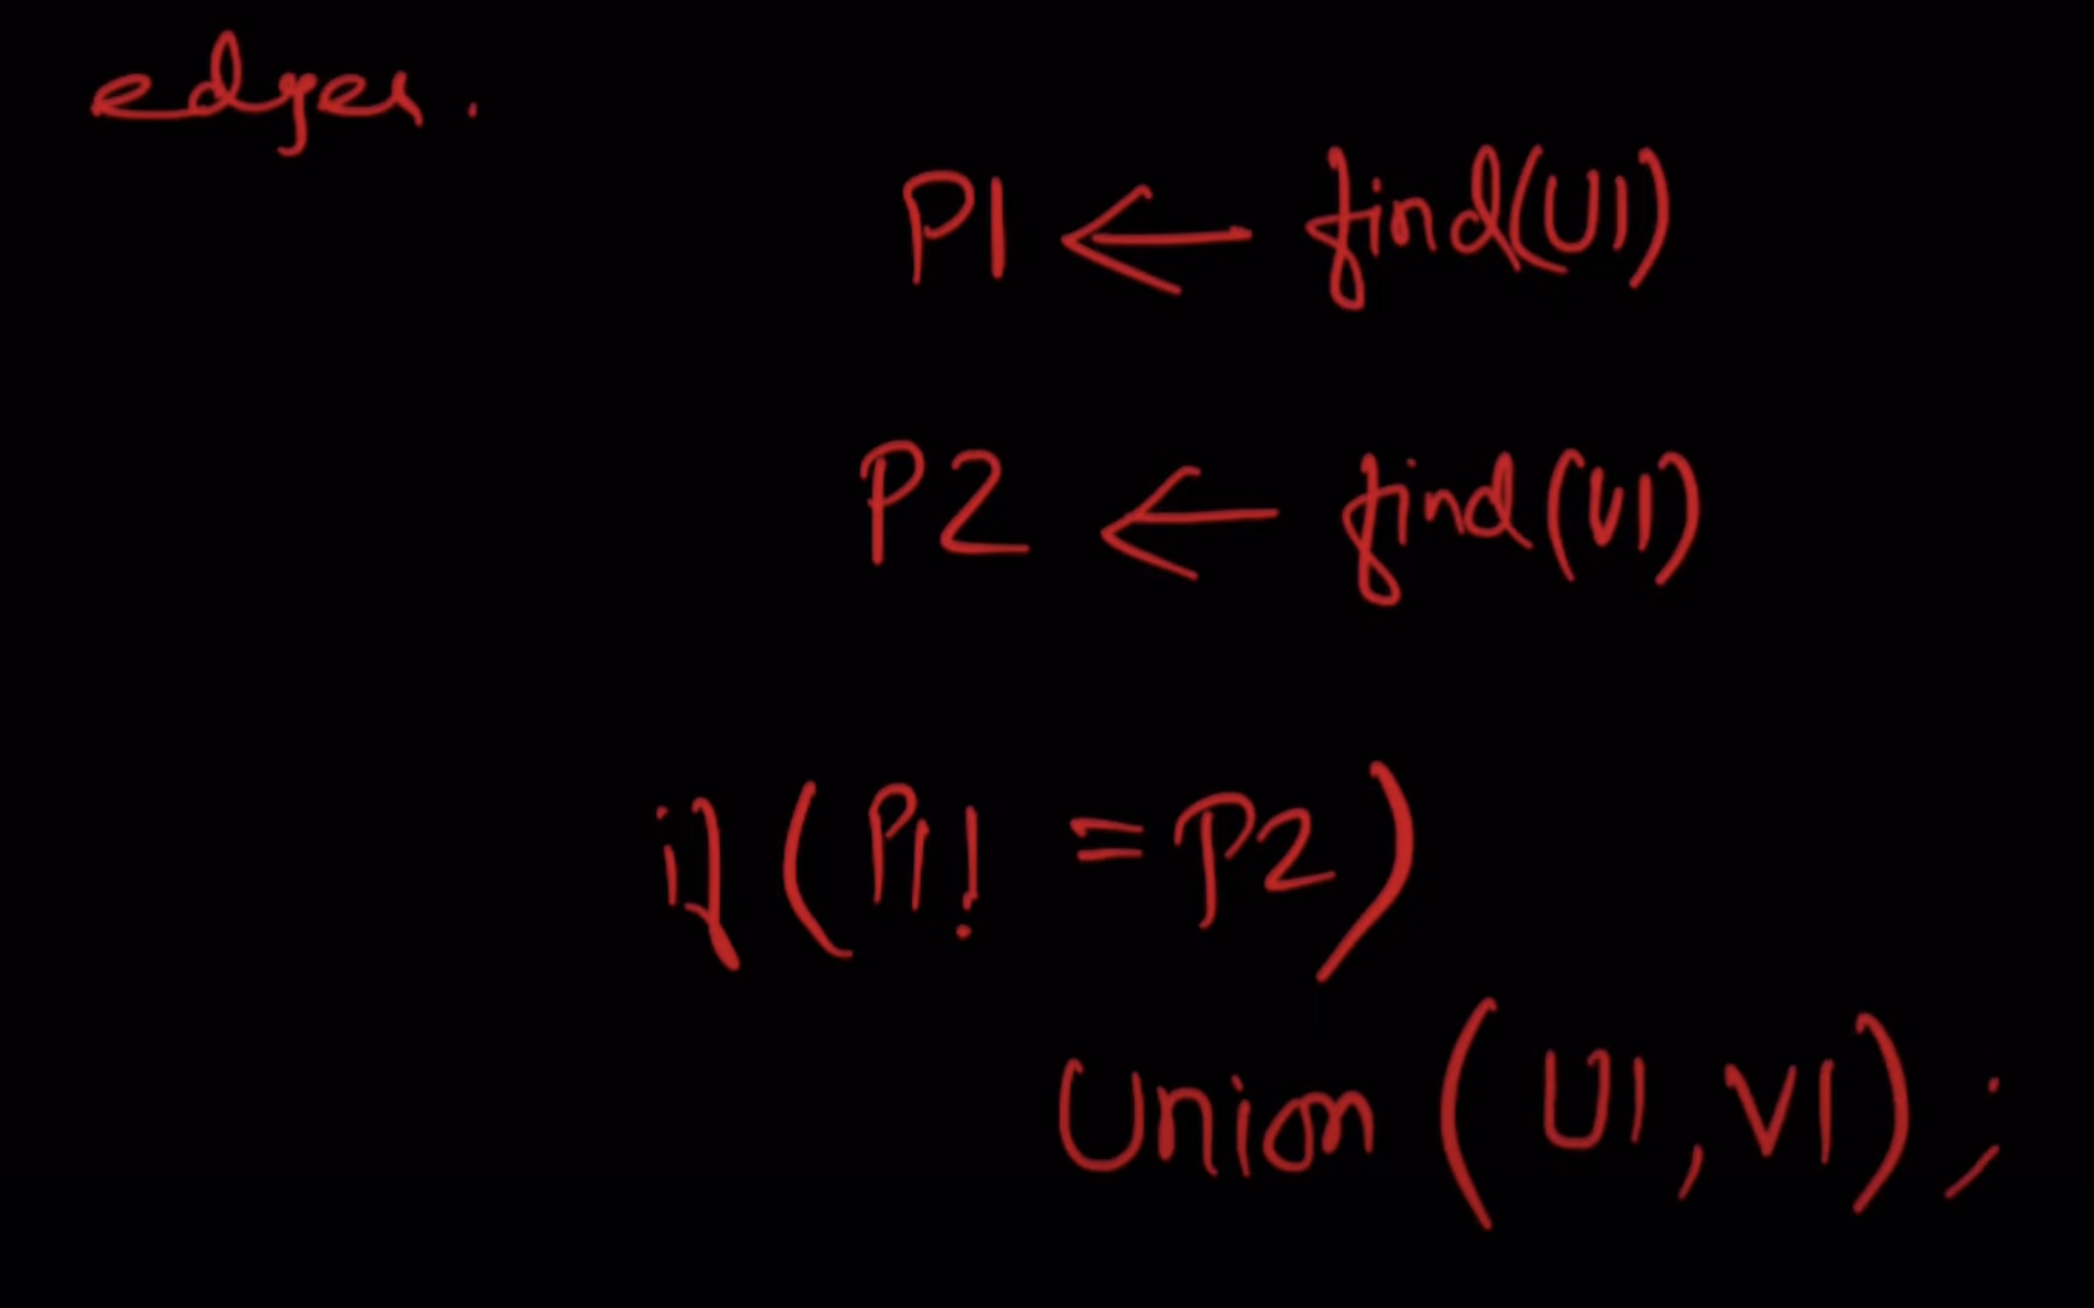 edges.
P1 ← find(U1)
P2 ← find(V1)
if (P1! = P2)
Union (U1, V1);